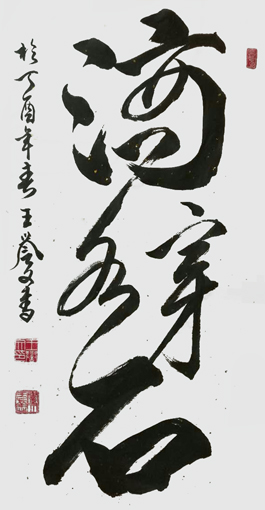 滴水穿石
於丁酉年春王書